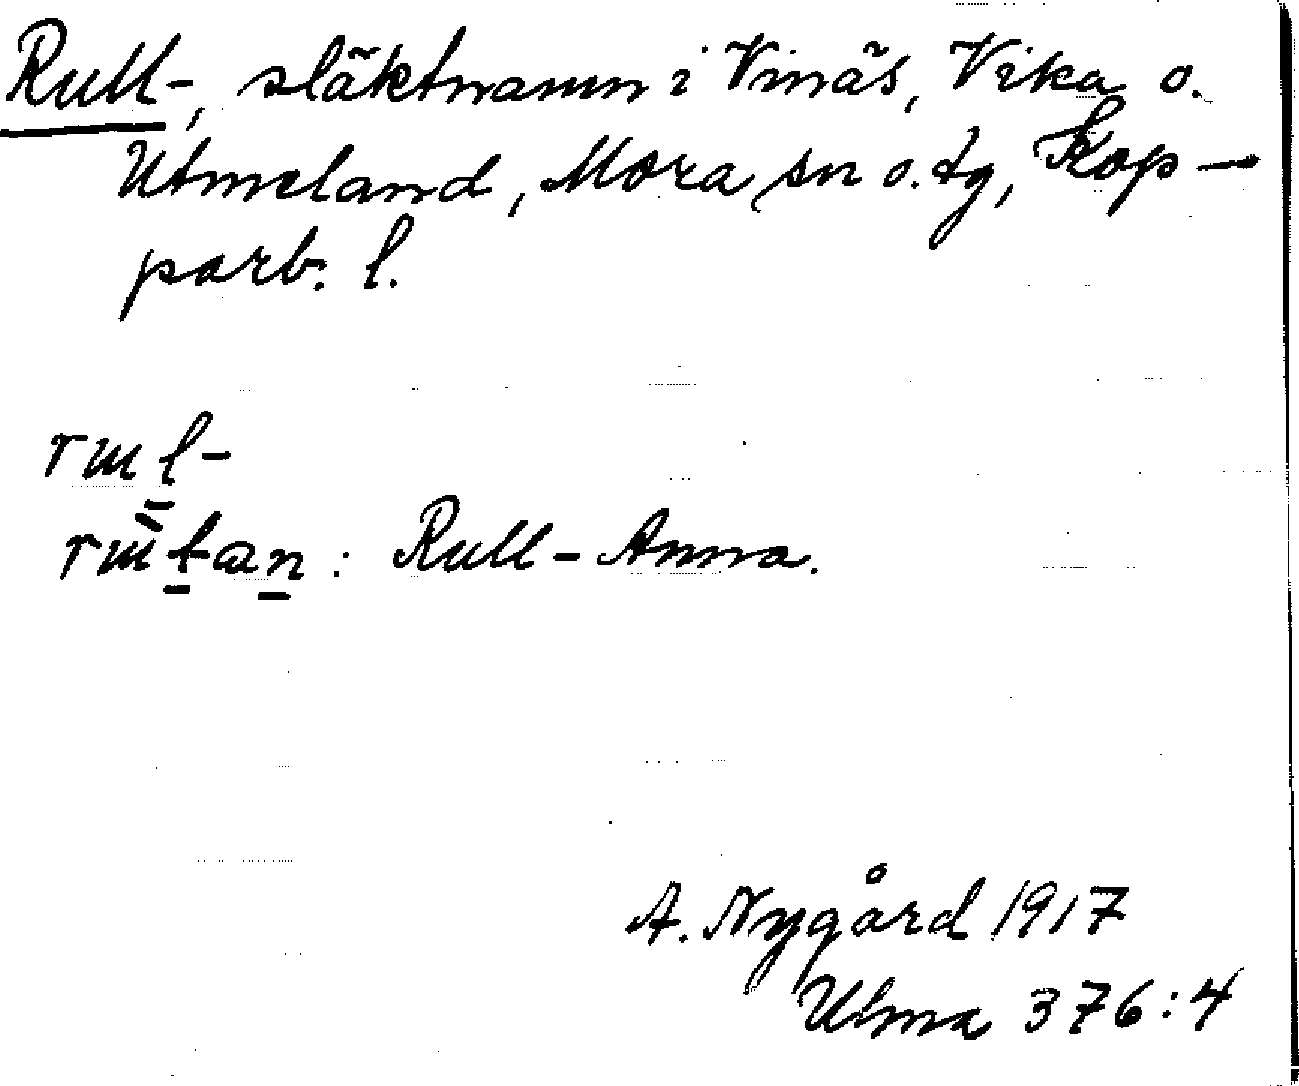 Rull-, släktnamn i Vinäs, Vika o.
Utmeland, Mora sn o. tg, Kop-
parb. l.
Rull-Anna.
A. Nygård 1917
Ulma 376:4